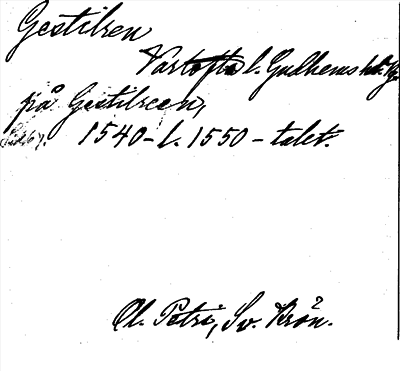 Gestilren
Vartofta l. Gudhems hd. Vg.
på Gestilreen,
1540- l. 1550 - talet.
Ol. Petri, Sv. Krön.